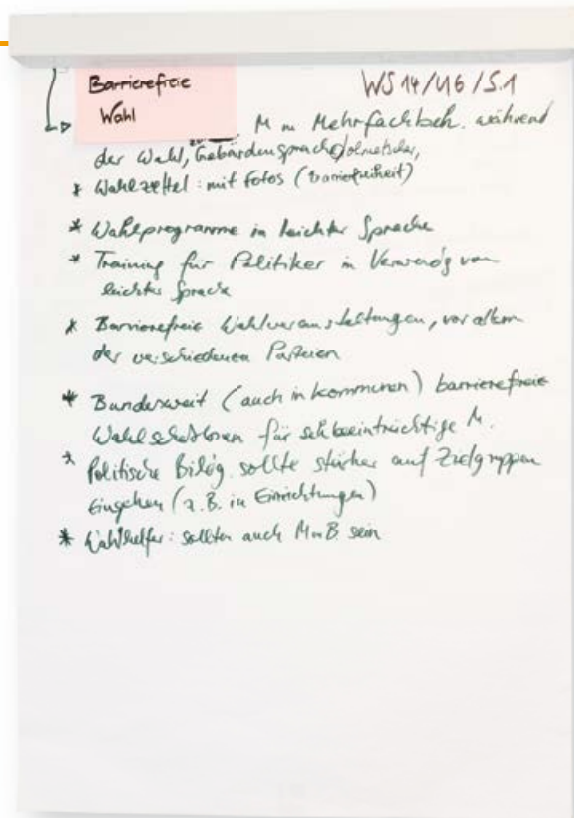 Barrierefreie
Wahl
WS 14/U6/S.1
M m Mehrfachbeh. während
der Wahl, Gebärdensprachdolmetscher,
* Wahlzettel: mit Fotos (Barrierefreiheit)
* Wahlprogramme in leichter Sprache
* Training für Politiker in Verwendg von
leichter Sprache
* Barrierefreie Wahlveranstaltungen, vor allem
der verschiedenen Parteien
* Bundesweit (auch in Kommunen) barrierefreie
Wahlschablonen für sehbeeinträchtige M.
* Politische Bildg. sollte stärker auf Zielgruppen
eingehen (z.B. in Einrichtungen)
* Wahlhelfer: sollten auch MmB sein